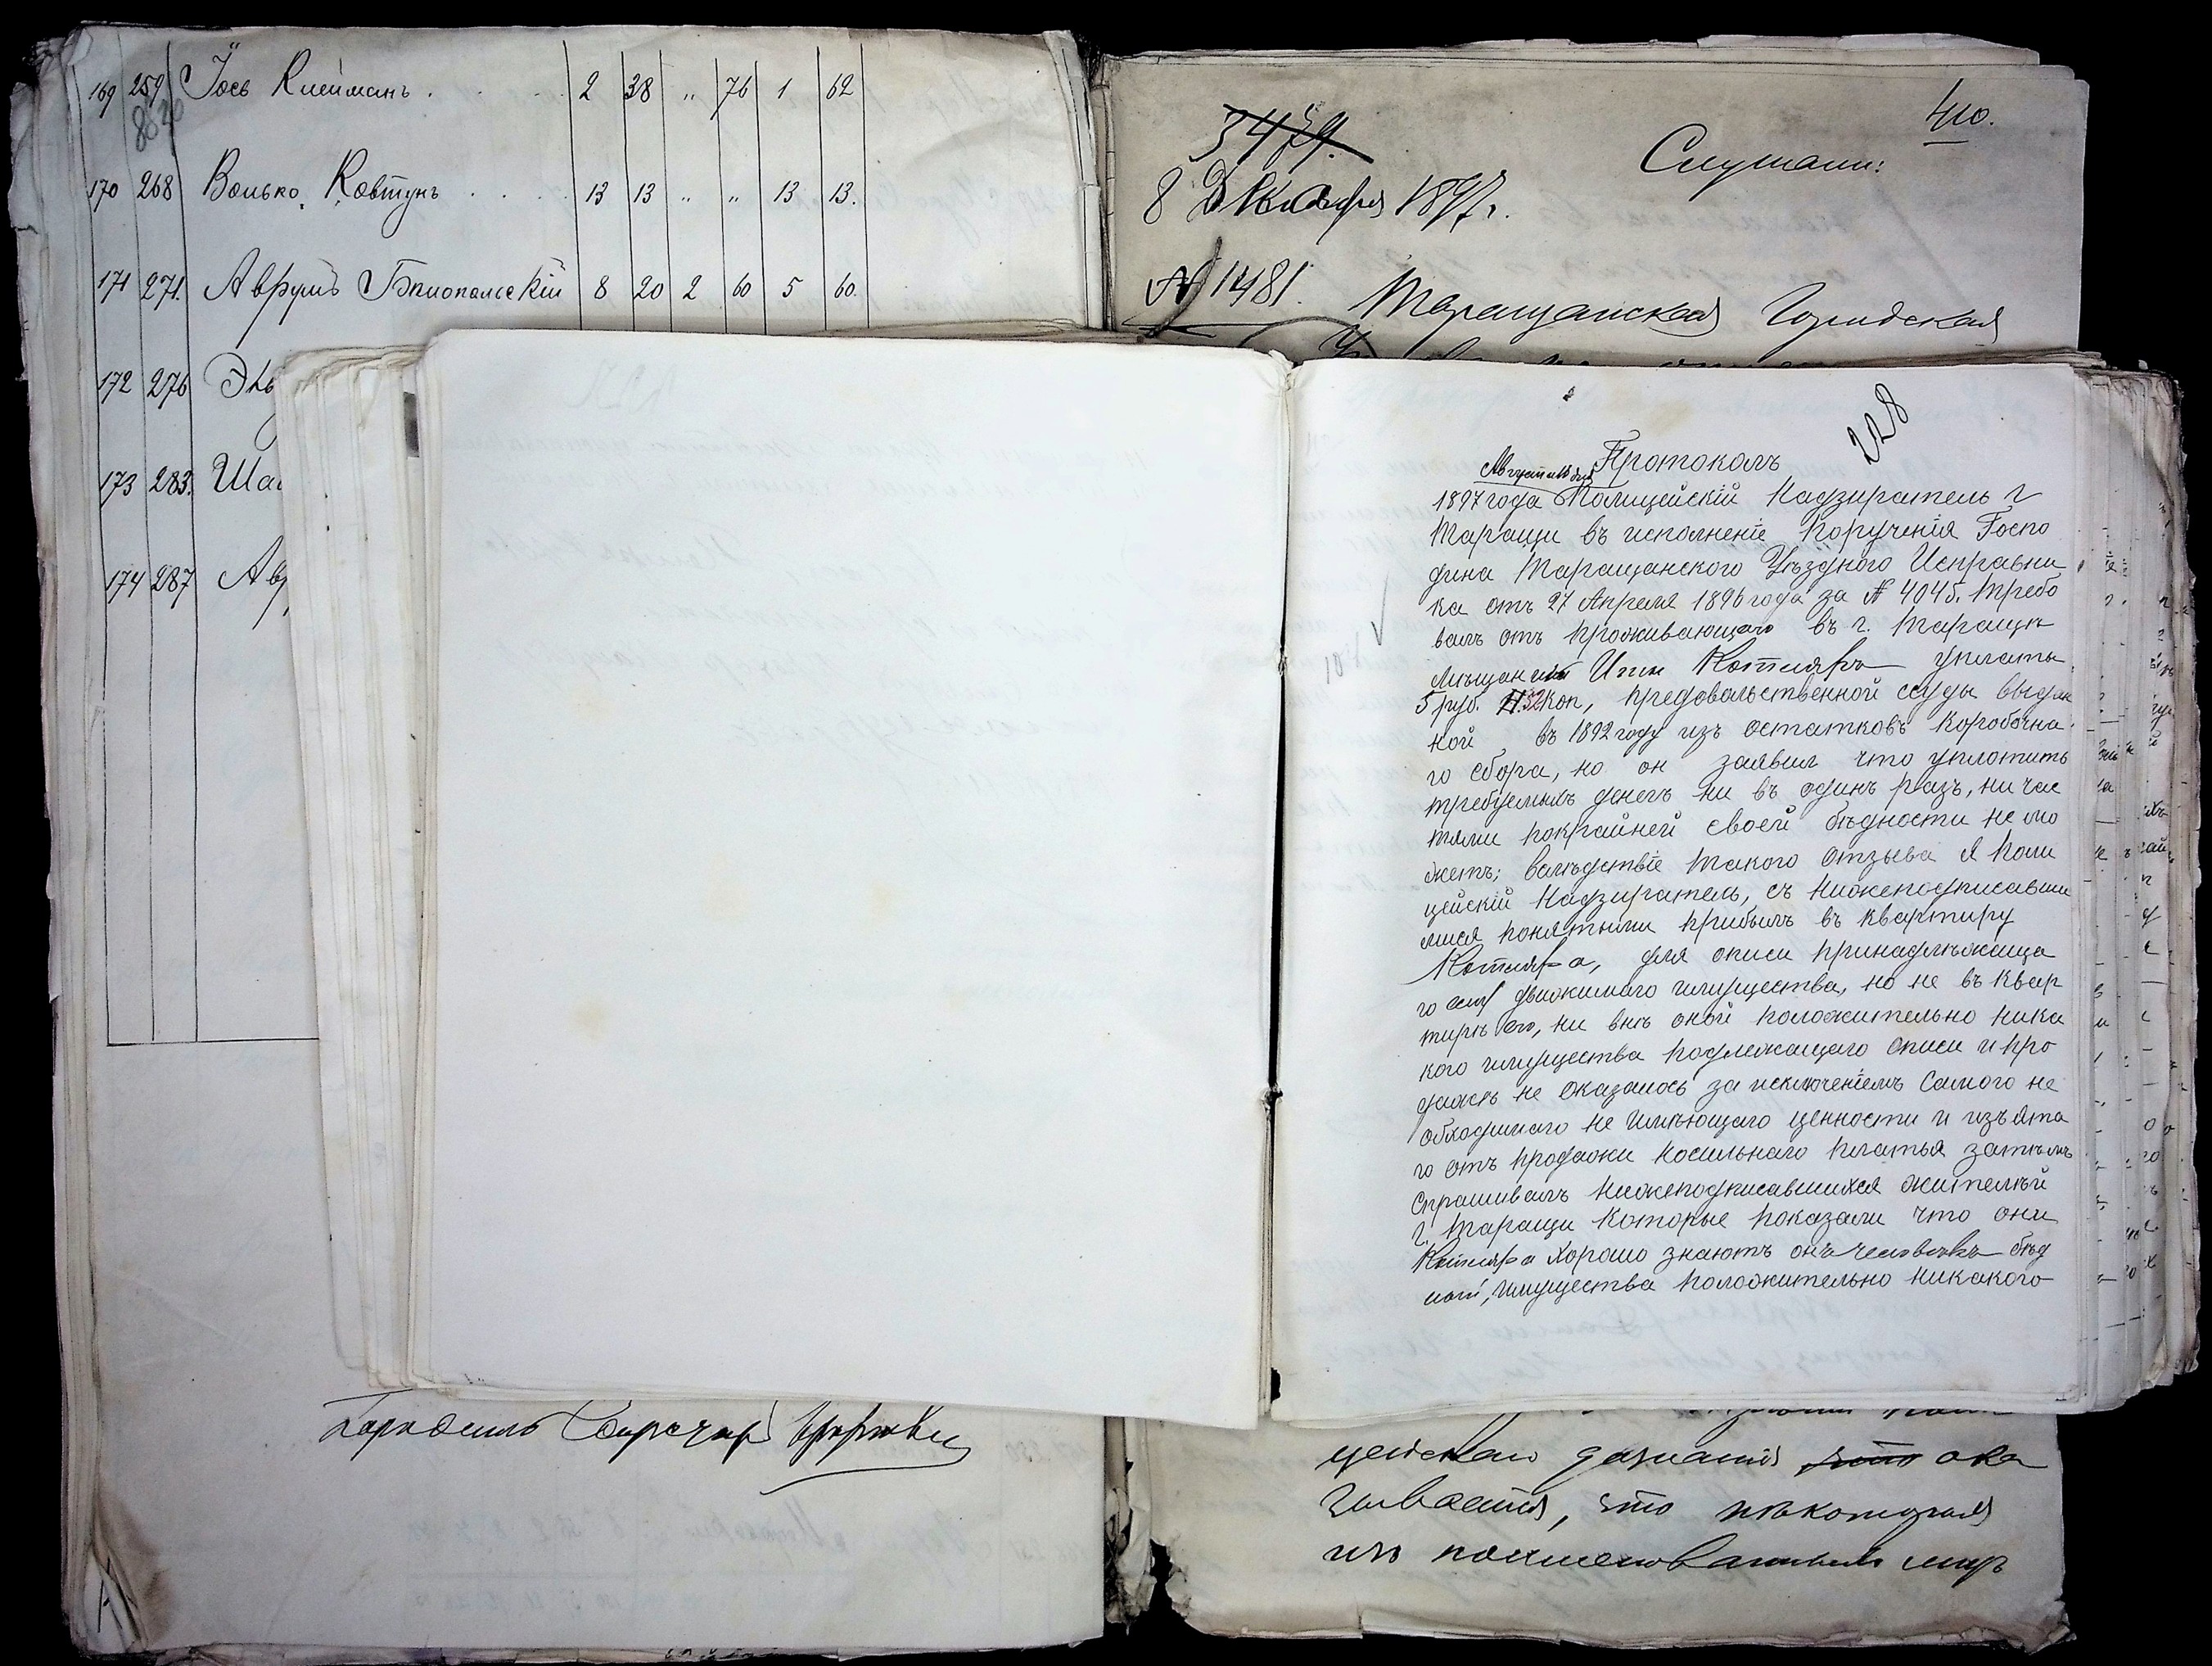 169 259 Іось Клейманъ . . . 2 38 „ 76 1 62
8020
170 268 Волько Ковтунъ . . . . 13 13 „ „ 13 13.
171 271. Аврумъ Бѣлопольскій 8 20 2 60 5 60.
172 276
173 283.
174 287
410.
3479.
Слушали:
8 Декабря 1897 г.
№ 1481.
Таращанская Городская
228
Протоколъ
Августа дня
1897 года Полицейскій Надзиратель г
Таращи въ исполненіе порученія Госпо
дина Таращанского Уѣздного Исправни
ка отъ 27 Апреля 1896 года за № 4045. требо
валъ отъ проживающаго въ г. Таращи
Мѣщанина Ици Котляръ уплаты
5 руб. 52 коп, продовольственной ссуды выдан
ной въ 1892 году изъ остатковъ коробочна
го сбора, но он заявил что уплотить
требуемыхъ денегъ ни въ одинъ разъ, ни час
тями покрайней своей бѣдности не мо
жетъ; вслѣдствіе такого отзыва я Поли
цейскій Надзиратель, съ нижеподписавши
мися понятыми прибылъ въ квартиру
Котляра, для описи принадлѣжаща
го ему движимаго имущества, но не въ квар
тирѣ его, ни внѣ оной положительно ника
кого имущества подлежащаго описи и про
дажѣ не оказалось за исключеніемъ самого не
обходимаго не имѣющаго ценности и изъята
го отъ продажи носильнаго платья затѣмъ
спрашивалъ нижеподписавшихся жителѣй
г. Таращи которые показали что они
Котляра хорошо знаютъ онъ человѣкъ бѣд
ный, имущества положительно никакого
108
цейскаго дознанія что ока
зывается, что нѣкоторыя
изъ поименованныхъ лицъ